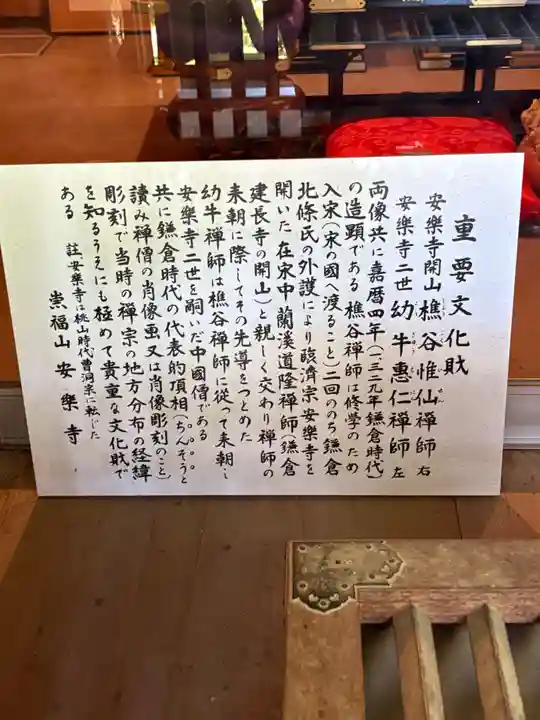 重要文化財
安樂寺開山樵谷惟仙禅師 右
安樂寺二世幼牛惠仁禅師 左
両像共に嘉暦四年(一三二九年鎌倉時代)
の造顕である 樵谷禅師は修学のため
入宋(宋の國へ渡ること)二回ののち鎌倉
北條氏の外護により臨済宗安樂寺を
開いた 在宋中蘭溪道隆禅師(鎌倉
建長寺の開山)と親しく交わり禅師の
来朝に際してその先導をつとめた
幼牛禅師は樵谷禅師に從って来朝し
安樂寺二世を嗣いだ中國僧である
共に鎌倉時代の代表的頂相(ちんそうと
讀み禅僧の肖像畫又は肖像彫刻のこと)
彫刻で当時の禅宗の地方分布の経緯
を知るうえにも極めて貴重な文化財で
ある 註 安樂寺は桃山時代曹洞宗に転じた
崇福山安樂寺